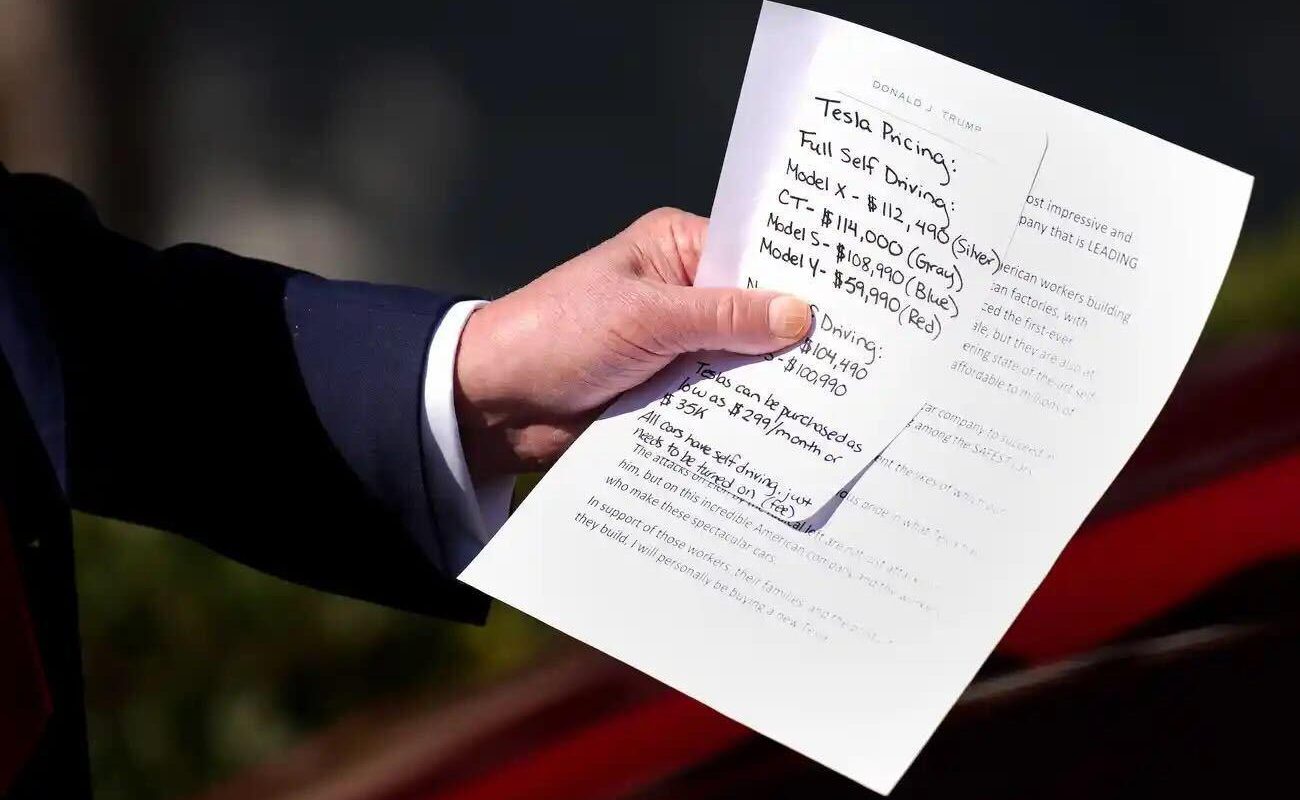 DONALD J. TRUMP
Tesla Pricing:
Full Self Driving:
Model X - $112,490 (Silver)
CT - $114,000 (Gray)
Model S - $108,990 (Blue)
Model Y - $59,990 (Red)
Driving:
$104,490
- $100,990
Teslas can be purchased as
low as $299/month or
$35K
All cars have self driving, just
needs to be turned on (fee)
ost impressive and
pany that is LEADING
erican workers building
an factories, with
ced the first-ever
ale, but they are also at
ering state of the art self
affordable to millions of
ar company to succeed in
among the SAFEST
ent the likes of which our
ous pride in what Tesla has
The attacks on Elon al left are not just
him, but on this incredible American company, and the workers
who make these spectacular cars.
In support of those workers, their families, and the
they build, I will personally be buying a new Tesla